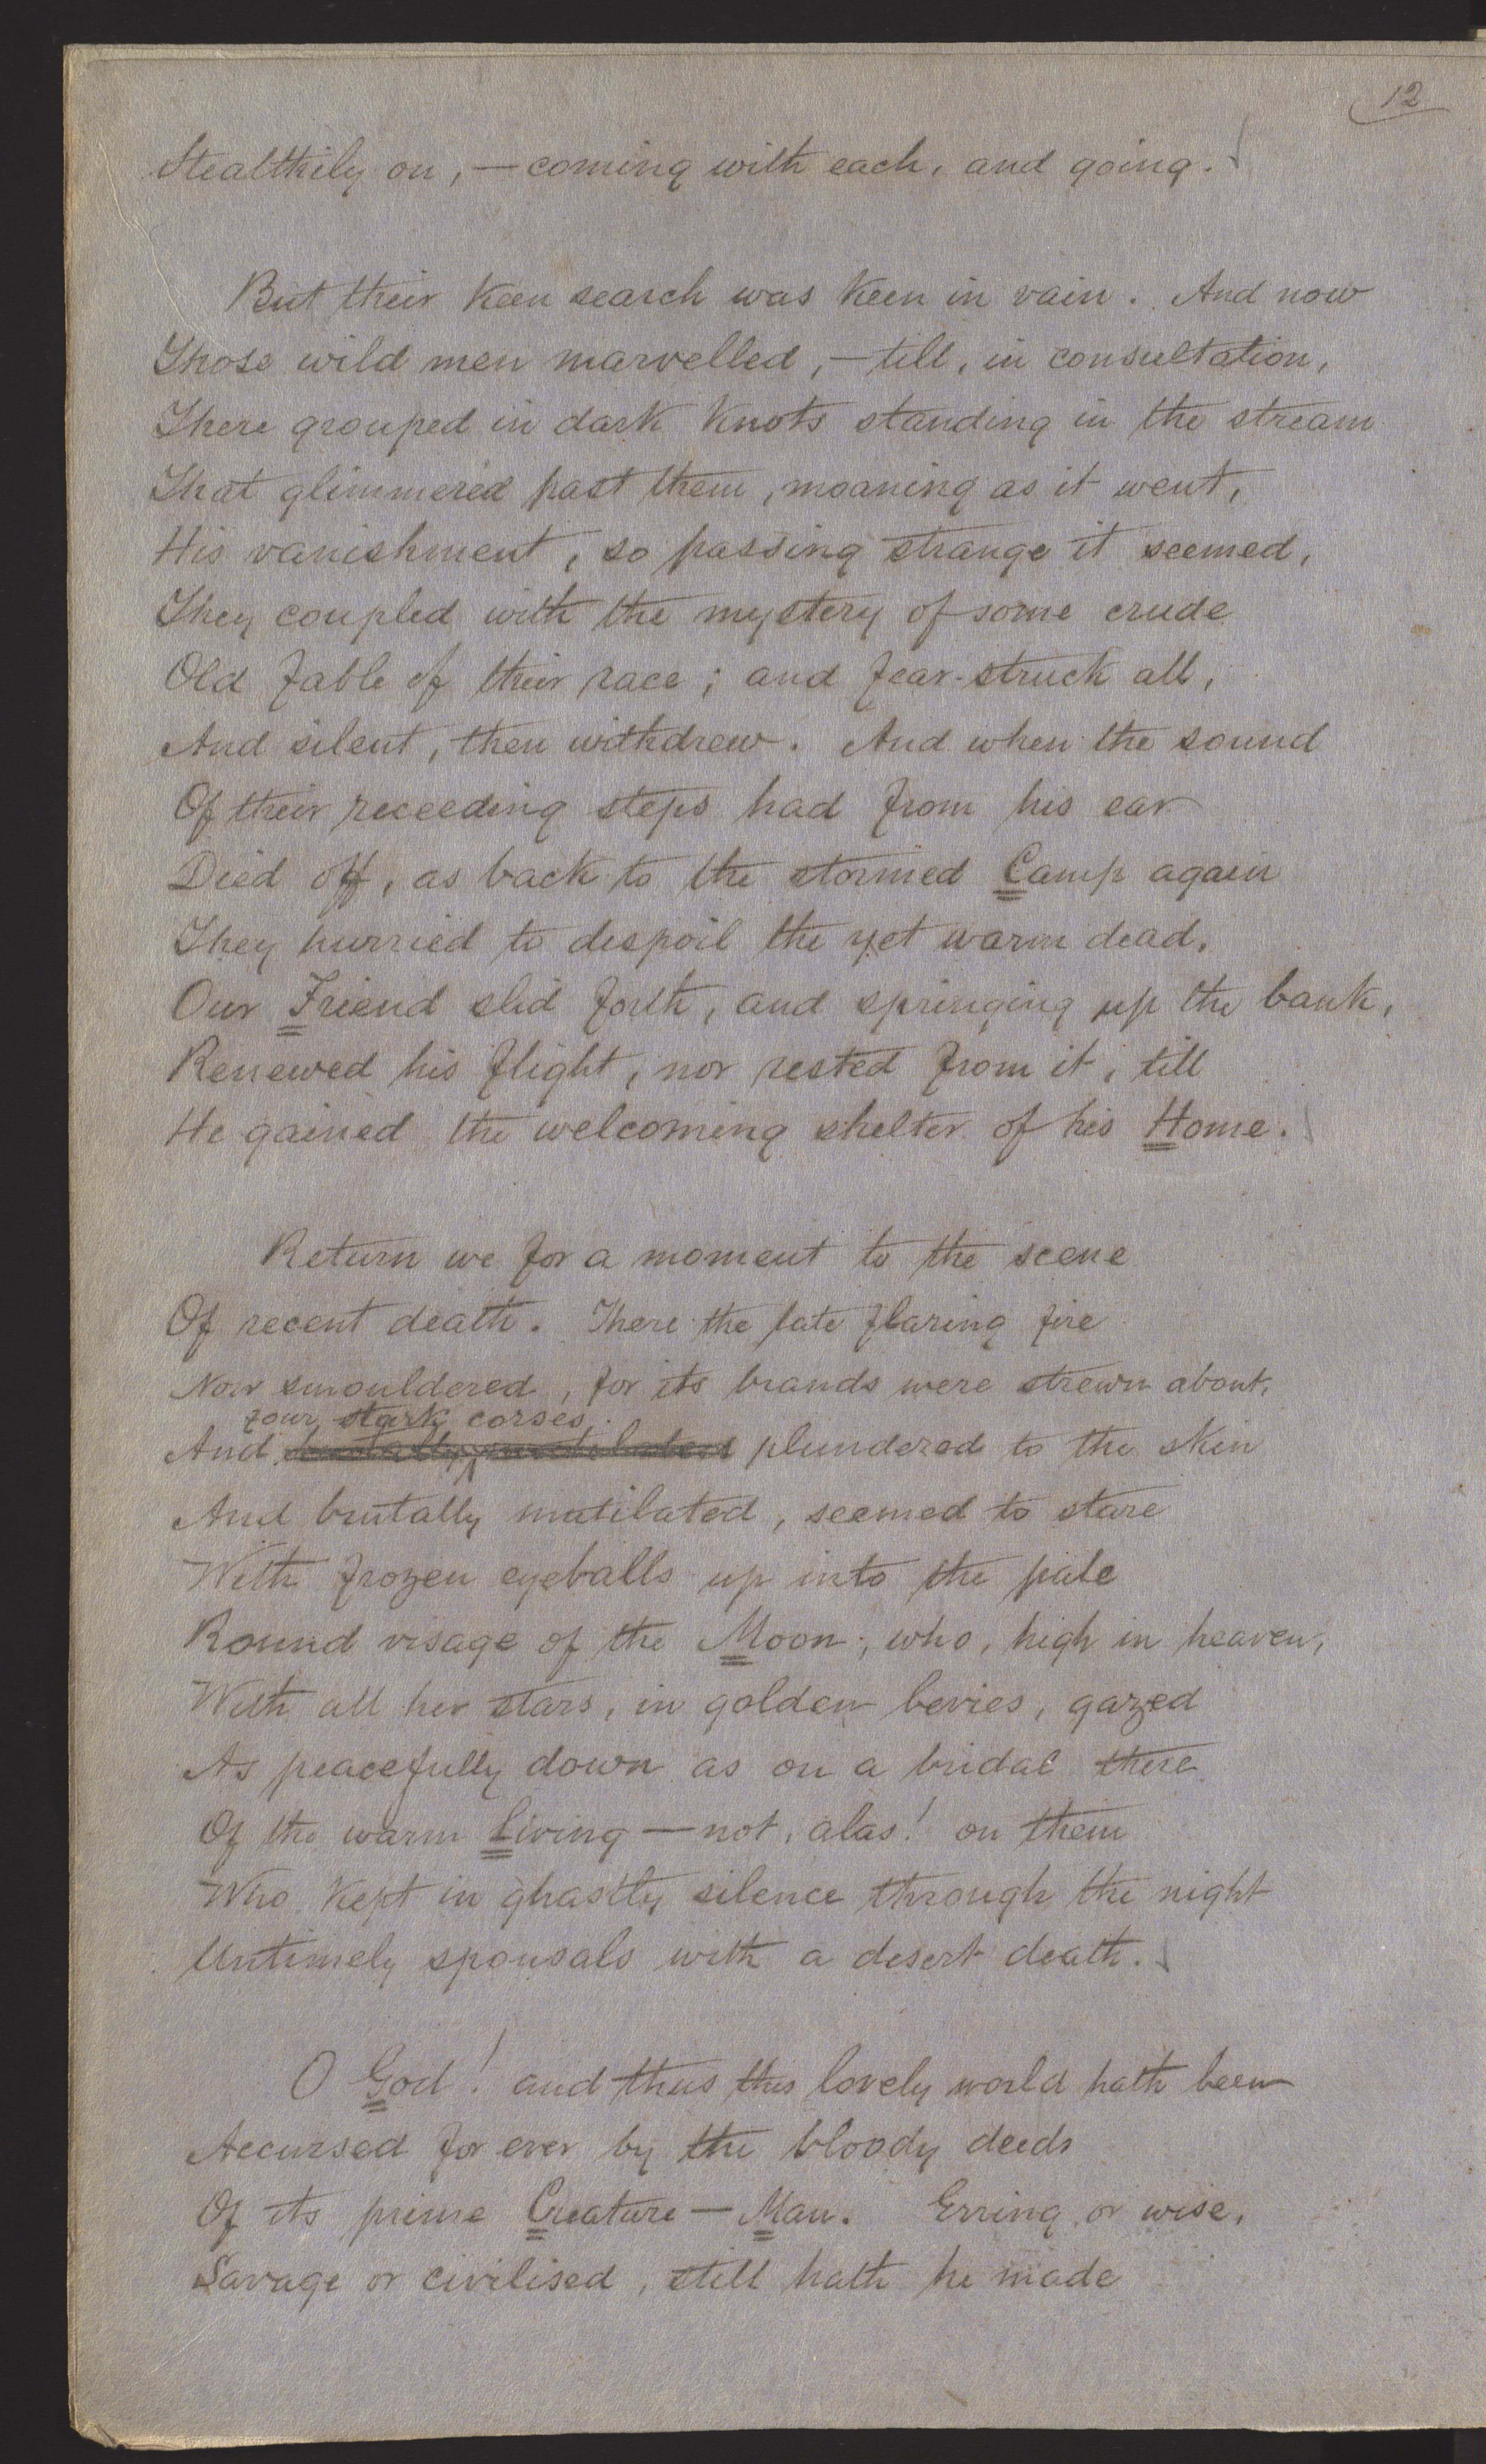 12
Stealthily on, — coming with each, and going.
But their keen search was keen in vain. And now
Those wild men marvelled, — till, in consultation,
There grouped in dark knots standing in the stream
That glimmered past them, moaning as it went,
His vanishment, so passing strange it seemed,
They coupled with the mystery of some crude
Old fable of their race; and fear-struck all,
And silent, then withdrew. And when the sound
Of their receeding steps had from his ear
Died off, as back to the stormed Camp again
They hurried to despoil the yet warm dead,
Our Friend slid forth, and springing up the bank,
Renewed his flight, nor rested from it, till
He gained the welcoming shelter of his Home.
Return we for a moment to the scene
Of recent death. There the late flaring fire
Now smouldered, for its brands were strewn about,
four stark corses,
And brutally mutilated plundered to the skin
And brutally mutilated, seemed to stare
With frozen eyeballs up into the pale
Round visage of the Moon; who, high in heaven,
With all her stars, in golden bevies, gazed
As peacefully down as on a bridal there
Of the warm Living — not, alas! on them
Who kept in ghastly silence through the night
Untimely spousals with a desert death.
O God! and thus this lovely world hath been
Accursed for ever by the bloody deeds
Of its prime Creature — Man. Erring or wise,
Savage or civilised, still hath he made